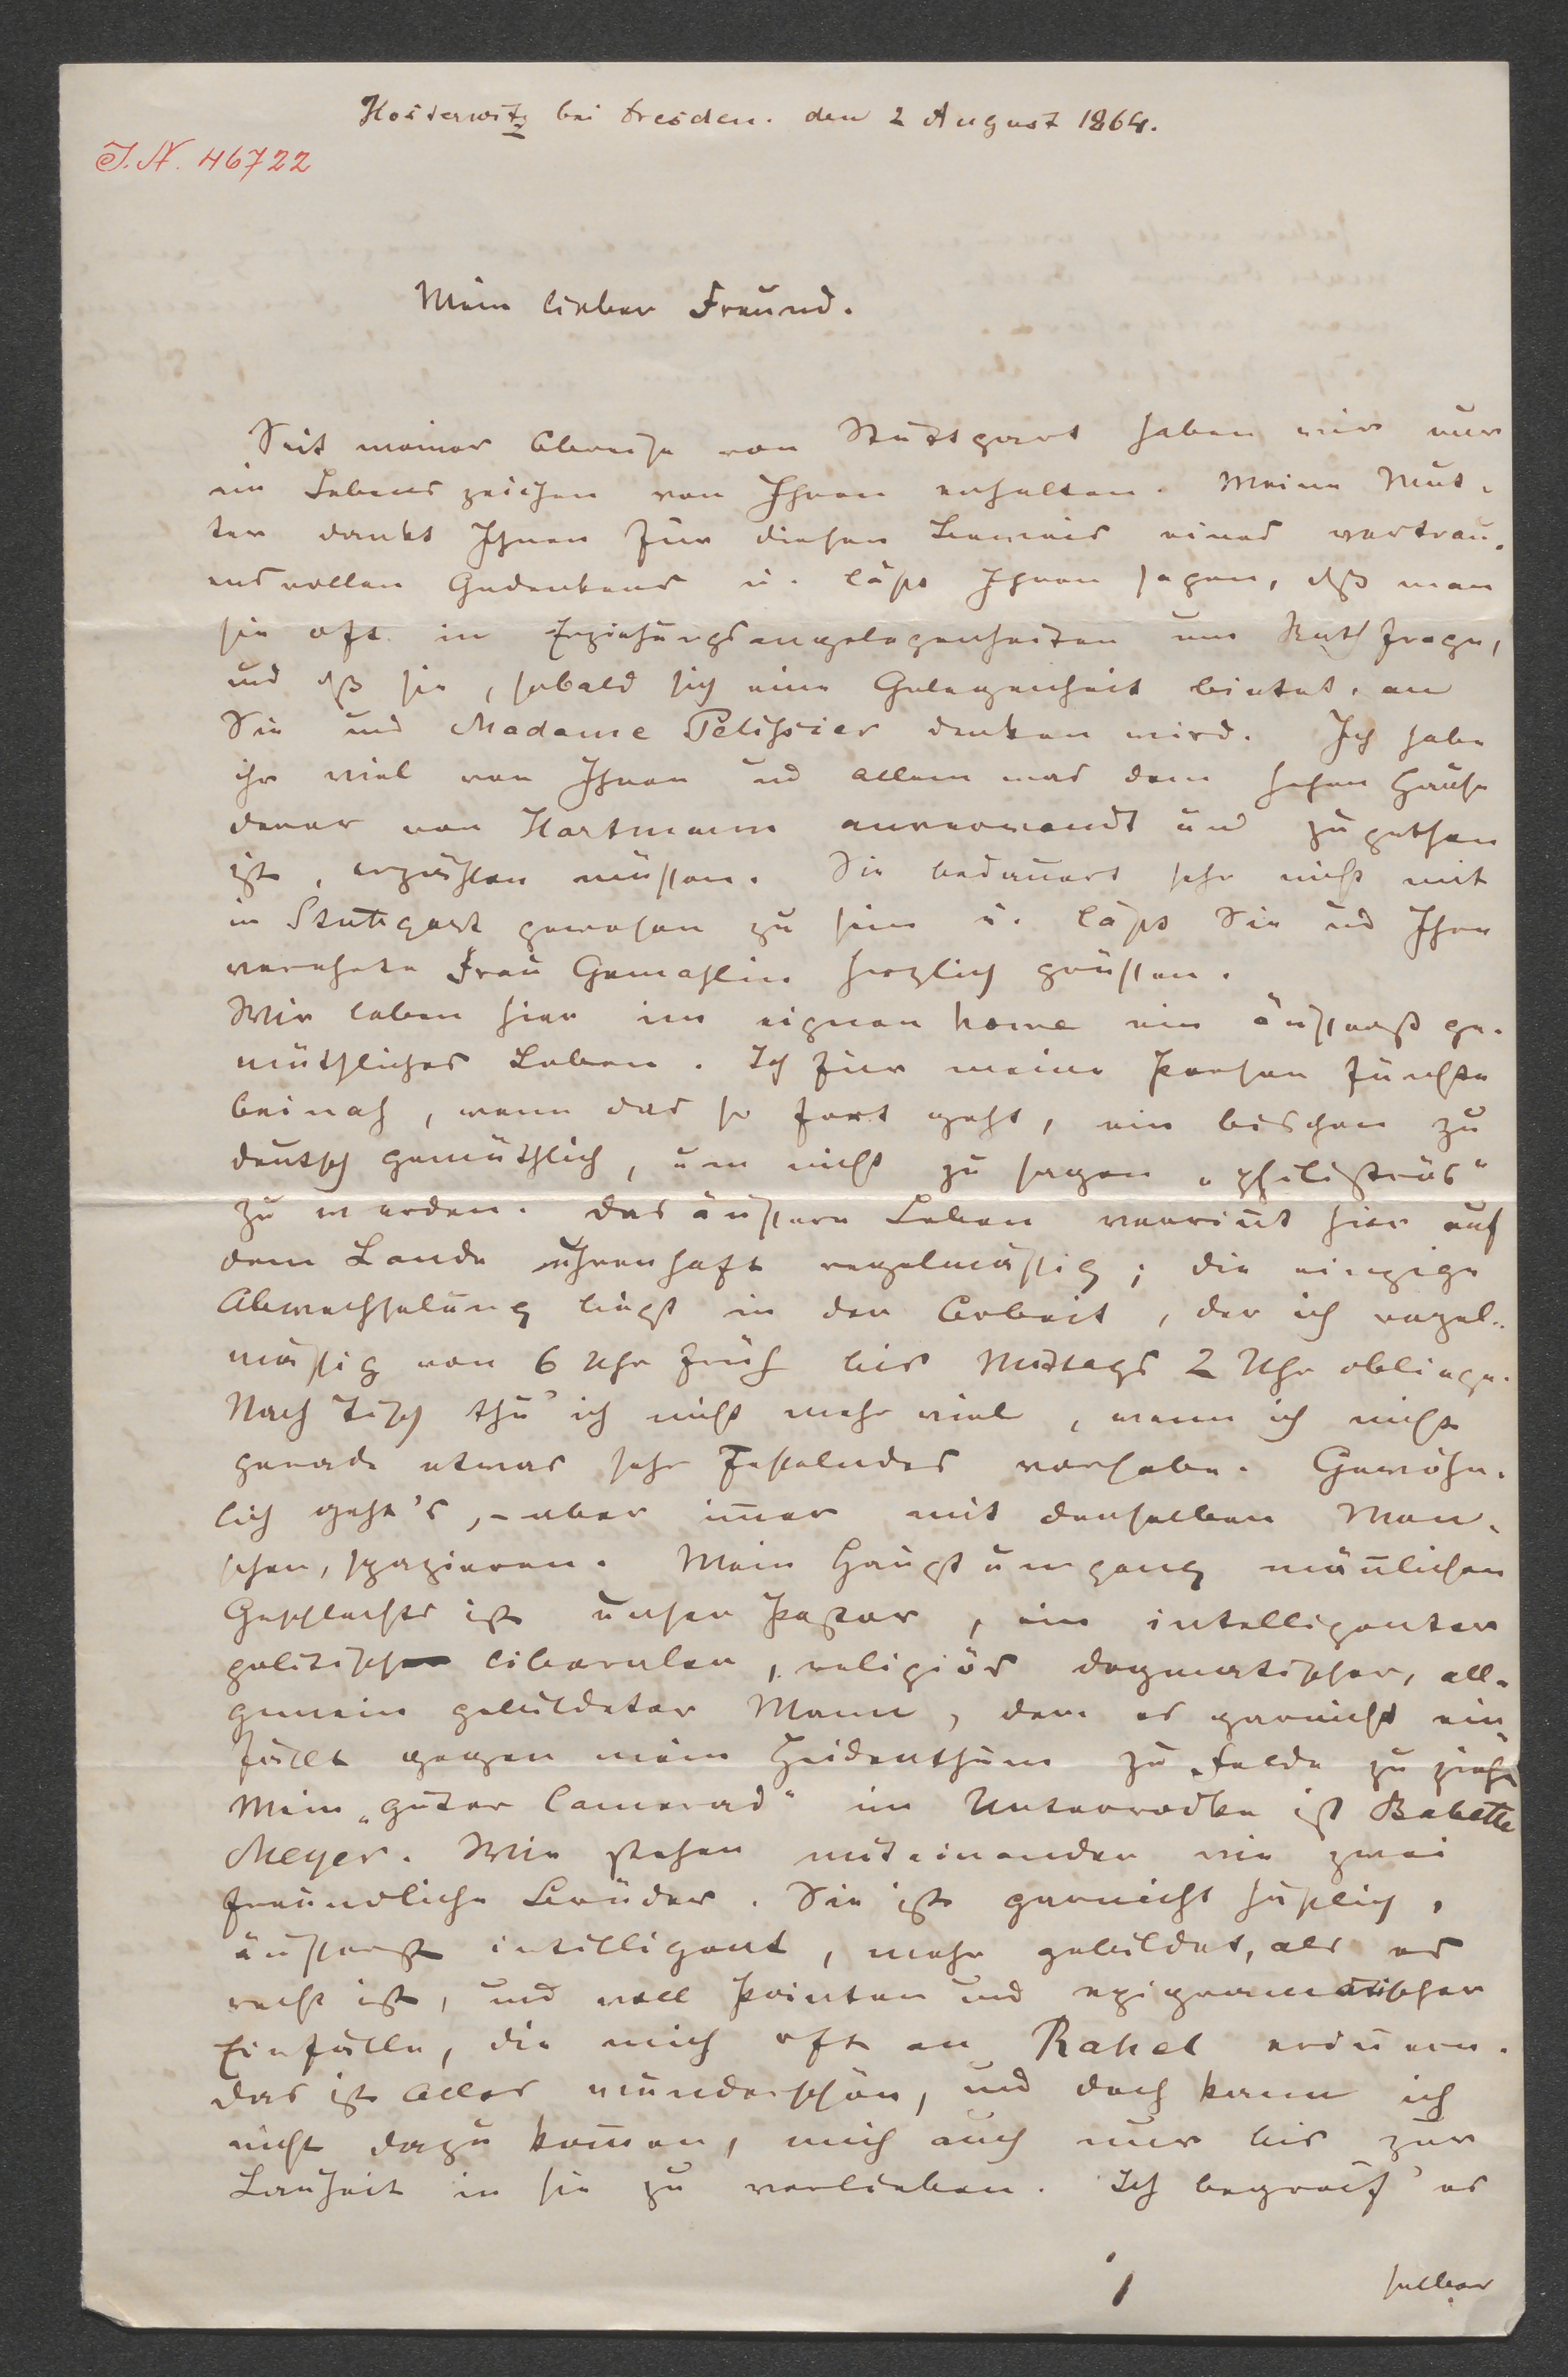 Hosterwitz bei Dresden. den 2 August 1864.
I.N. 46722
Mein lieber Freund.
Seit meiner Abreise von Stuttgart haben wir nur
ein Lebenszeichen von Ihnen erhalten. Meine Mut-
ter dankt Ihnen für diesen Beweis eines vertrau-
ensvollen Gedenkens u. läßt Ihnen sagen, dß man
sie oft in Erziehungsangelegenheiten um Rath frage,
und dß sie, sobald sich eine Gelegenheit bietet, an
Sie und Madame Pelissier denken wird. Ich habe
ihr viel von Ihnen und allem was dem hohen Hause
derer von Hartmann anverwandt und zugethan
ist, erzählen müssen. Sie bedauert sehr nicht mit
in Stuttgart gewesen zu sein u. läßt Sie und Ihre
verehrte Frau Gemahlin herzlich grüßen.
Wir leben hier im eignen home ein äußerst ge-
müthliches Leben. Ich für meine Person fürchte
beinah, wenn das so fort geht, ein bischen zu
deutsch gemüthlich, um nicht zu sagen „philiströs"
zu werden. Das äußere Leben verrinnt hier auf
dem Lande uhrenhaft regelmäßig; die einzige
Abwechselung liegt in der Arbeit, der ich regel-
mäßig von 6 Uhr früh bis Mittags 2 Uhr obliege.
Nach Tisch thu' ich nicht mehr viel, wenn ich nicht
gerade etwas sehr Fesselndes vorhabe. Gewöhn-
lich geht's, – aber immer mit denselben Men-
schen, spazieren. Mein Hauptumgang männlichen
Geschlechts ist unser Pastor, ein intelligenter
politisch liberaler, religiös dogmatischer, all-
gemein gebildeter Mann, dem es garnicht ein-
fällt gegen mein Heidenthum zu Felde zu ziehn
Mein „guter Camerad" im Unterrocke ist Babette
Meyer. Wir stehen miteinander wie zwei
freundliche Brüder. Sie ist garnicht häßlich,
äußerst intelligent, mehr gebildet, als es
recht ist, und voll Pointen und epigrammatischer
Einfälle, die mich oft an Rahel erinnern.
Das ist Alles wunderschön, und doch kann ich
nicht dazu kommen, mich auch nur bis zur
Lauheit in sie zu verlieben. Ich begreif' es
selber